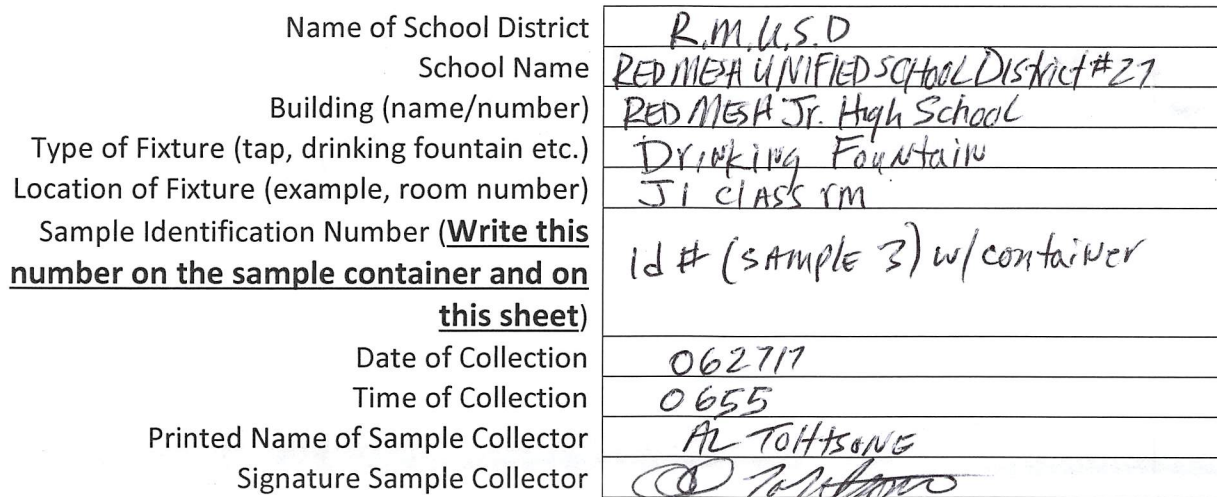 Name of School District R.M.U.S.D
School Name RED MESA UNIFIED SCHOOL District #27
Building (name/number) RED MESA Jr. High School
Type of Fixture (tap, drinking fountain etc.) Drinking Fountain
Location of Fixture (example, room number) J1 classrm
Sample Identification Number (Write this
number on the sample container and on
this sheet) Id # (SAMPLE 3) w/container
Date of Collection 062717
Time of Collection 0655
Printed Name of Sample Collector AL TOHTSONE
Signature Sample Collector